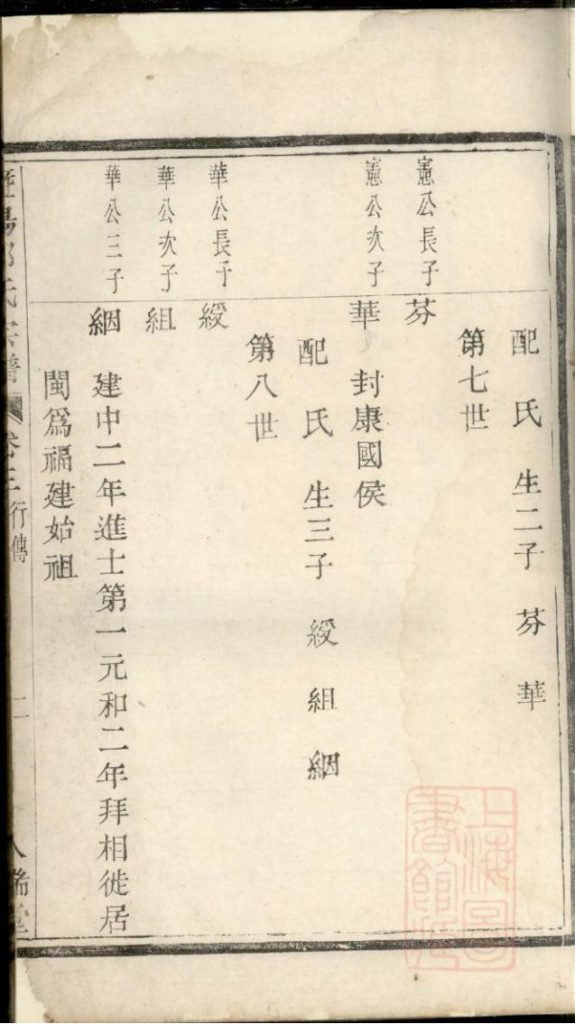 配氏　生二子　芬　華
第七世
憲公長子　芬
憲公次子　華　封康國侯
配氏　生三子　綬　組　絪
第八世
華公長子　綬
華公次子　組
華公三子　絪　建中二年進士第一元和二年拜相徙居
閩爲福建始祖
氏宗譜　卷三　行傳　二
上海圖書館藏